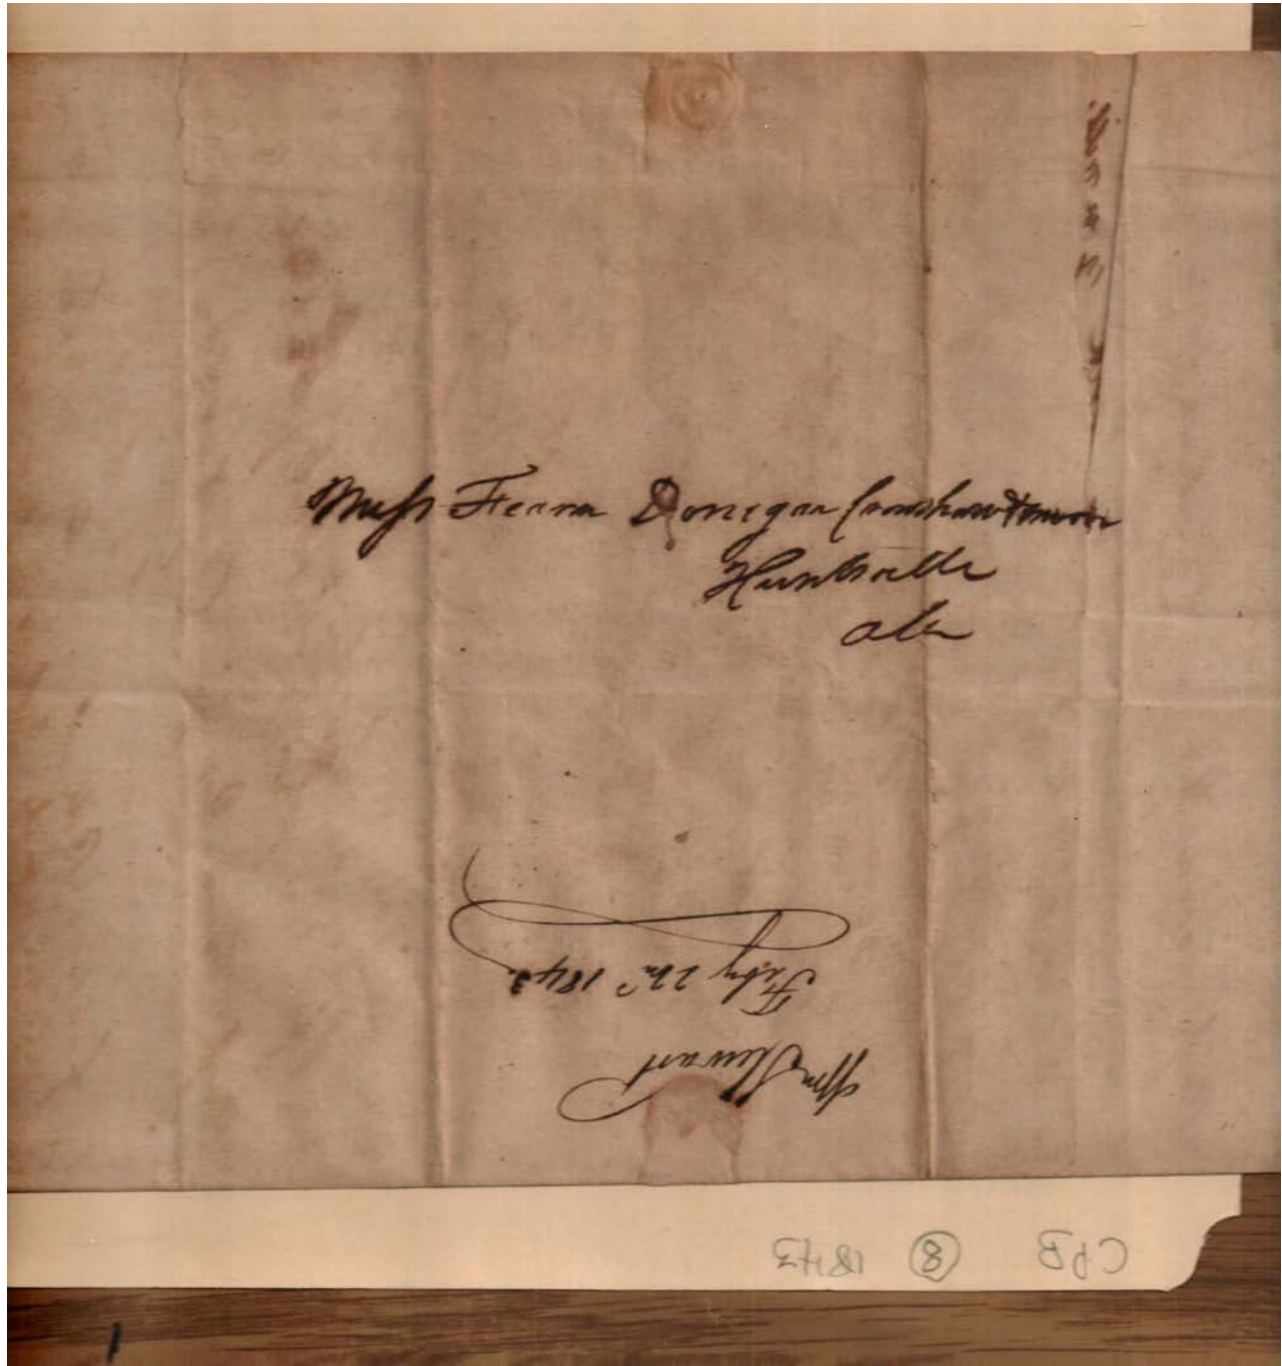 Mess Fearn Donegan Crenshaw &
Huntsville
ala
Wm Stewart
Feby 22nd 1843
CPB 8 1843